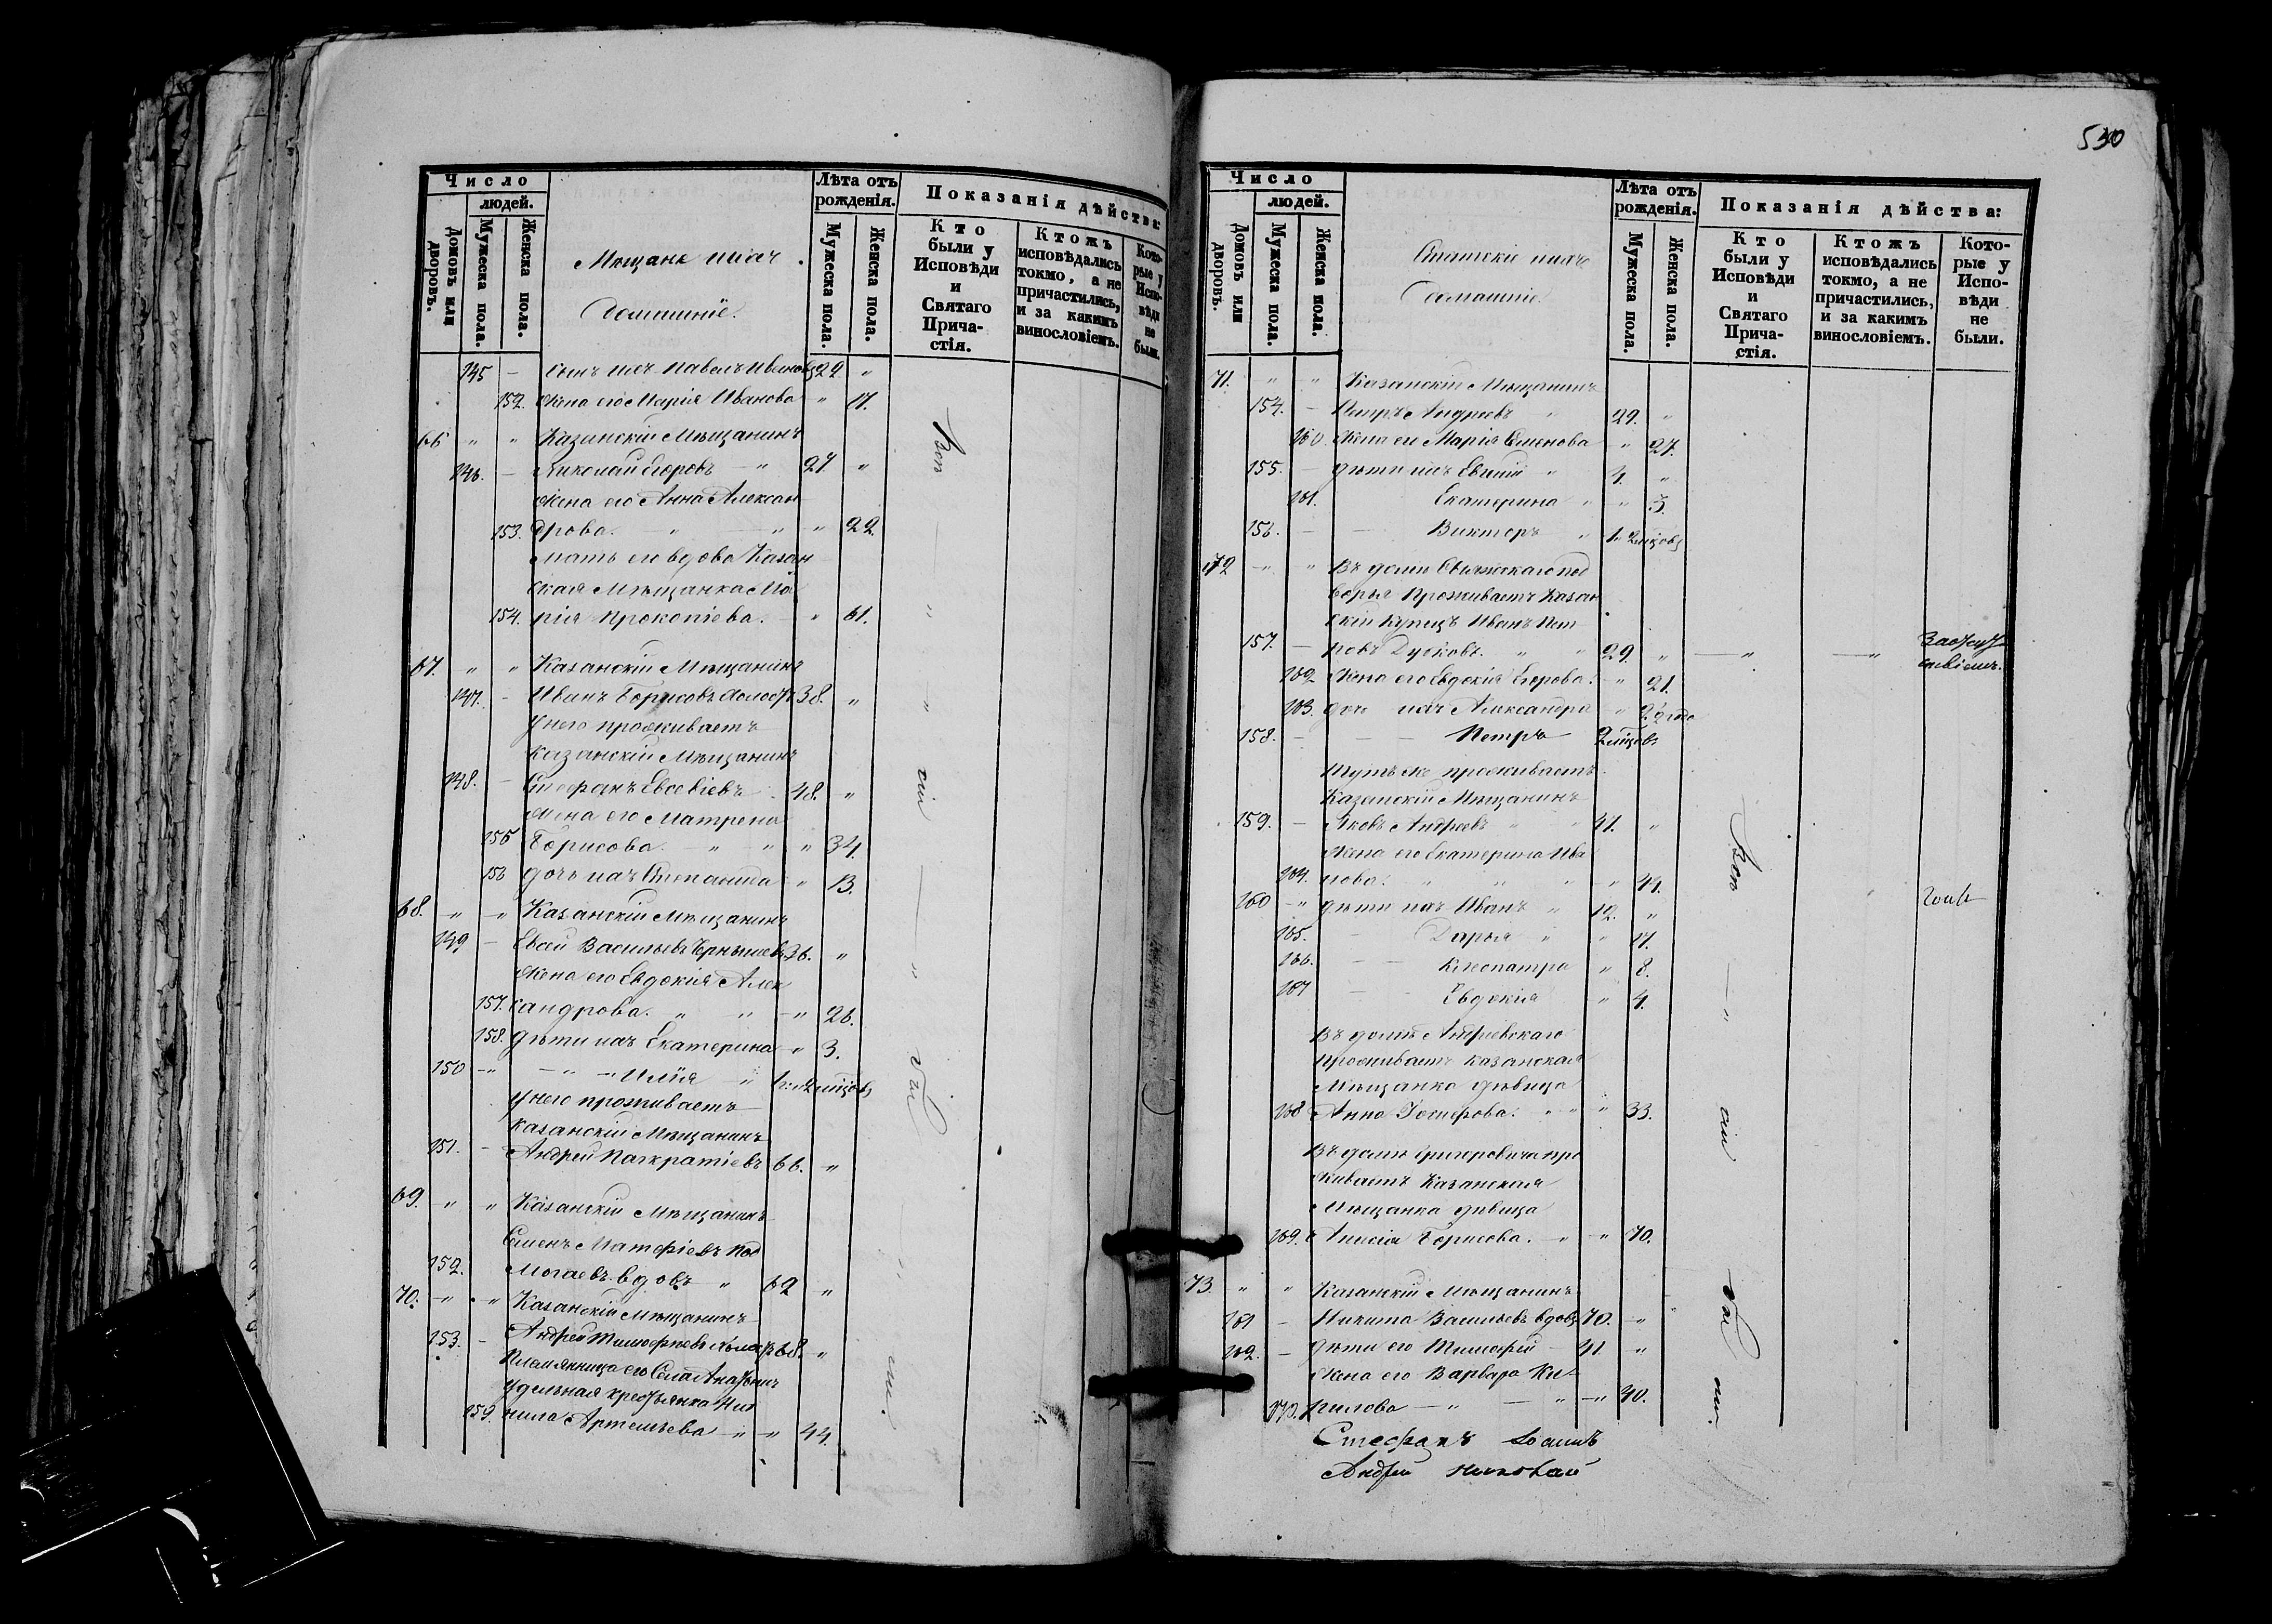 Число
людей.
Домовъ или дворовъ.
Мужеска пола.
Женска пола.
Мещане ихъ
домашніе.
Лѣта отъ рожденія.
Мужеска пола.
Женска пола.
Показанія дѣйства:
Кто были у Исповѣди и Святаго Причастія.
Ктожъ исповѣдались токмо, а не причастились, и за какимъ винословіемъ.
Которые у Исповѣди не были.
145 - сынъ ихъ Павелъ Ивановъ 22 "
152. жена его Марія Иванова " 17.
66 " " Казанскій Мѣщанинъ
146. - Николай Егоровъ - " 27 "
жена его Анна Алексан
153. дрова. " " " 22.
мать его вдова Казан
ская Мѣщанка Ма
154. рія Прокопіева. - " 61.
67. " " Казанскій Мѣщанинъ
147. - Иванъ Борисовъ холостъ 38. "
у него проживаетъ
Казанскій Мѣщанинъ
148. - Стефанъ Евсевіевъ 48. "
жена его Матрена
155 Борисова. - " - " " 34.
156 дочь ихъ Степанида " 13.
68. " " Казанскій Мѣщанинъ
149 - Васильевъ 26. "
жена его Евдокія Алек
157. сандрова. " " -" 26.
158. дѣти ихъ Екатерина -" 3.
150 -" -" - Илія -" 2 мѣсцовъ
у него проживаетъ
Казанскій Мѣщанинъ
151. - Андрей Панкратіевъ 66. "
69. -" " Казанскій Мѣщанинъ
Семенъ Матфіевъ
152. вдовъ " 62 "
70. -" " Казанскій Мѣщанинъ
153. - Андрей Тимофѣевъ холостъ 68. "
Племянница его Села
удѣльная крестьянка
159. нила Артемьева -" -" 44.
Вси
сіи
530
Число
людей.
Домовъ или дворовъ.
Мужеска пола.
Женска пола.
ихъ
домашніе.
Лѣта отъ рожденія.
Мужеска пола.
Женска пола.
Показанія дѣйства:
Кто были у Исповѣди и Святаго Причастія.
Ктожъ исповѣдались токмо, а не причастились, и за какимъ винословіемъ.
Которые у Исповѣди не были.
71. " " Казанскій Мѣщанинъ
154. - Петръ Андреевъ " 29. "
160. жена его Марія Семенова " 27.
155. - дѣти ихъ Евгеній " 4. "
161. Екатерина " " 3.
156. - - Викторъ " 2 мѣсцовъ
72 -" " Въ домѣ Свіяжскаго под
ворья Проживаетъ Казан
скій Купецъ Иванъ Пет
157. - ровъ " " 29. " - " -"
162 жена его Евдокія Егорова. -" 21.
163. дочь ихъ Александра " 2 года
158. - - - Петръ 2 мѣсцовъ
Тутъ же проживаетъ
Казанскій Мѣщанинъ
159. - Яковъ Андреевъ " " 41. "
жена его Екатерина Ива
164. нова. " " " -" 44.
160 -" дѣти ихъ Иванъ " 12. "
165. - Дарья " " 17.
166. - - Клеопатра " 8.
167 - - Евдокія " 4.
Въ домѣ Андріевскаго
проживаетъ Казанская
Мѣщанка дѣвица
168 Анна " " " 33.
Въ домѣ Григоровича про
живаетъ Казанская
Мѣщанка дѣвица
169. Анисія Борисова. -" -" 70.
73 " " Казанскій Мѣщанинъ
161 - Никита Васильевъ вдовъ 70. -"
162. - дѣти его Тимофей - 41. "
жена его Варвара Ки-
170. рилова -" -" -" 40.
Вси
сіи
Стефанъ Іоаннъ
Андрей Николай